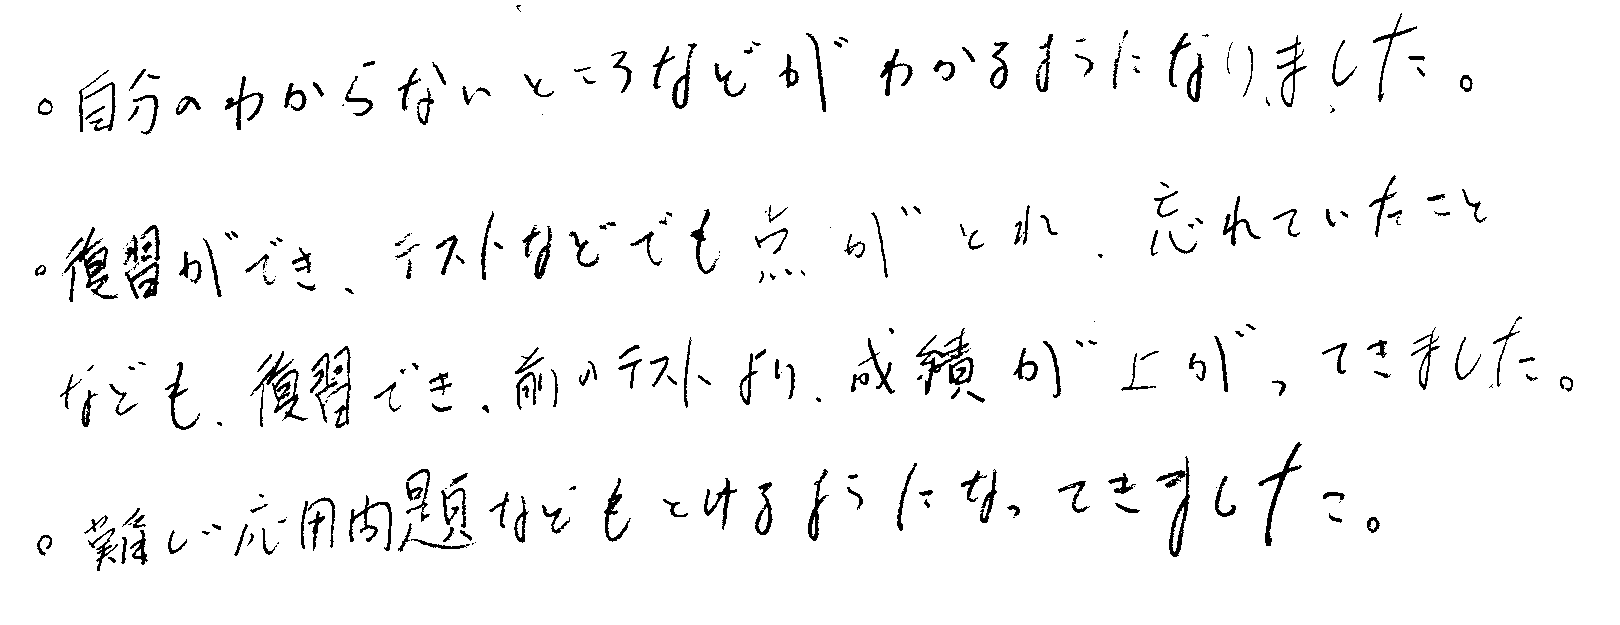 。自分のわからないところなどがわかるようになりました。
。復習ができ、テストなどでも点がとれ、忘れていたこと
なども、復習でき、前のテストより、成績が上がってきました。
。難しい応用問題などもとけるようになってきました。